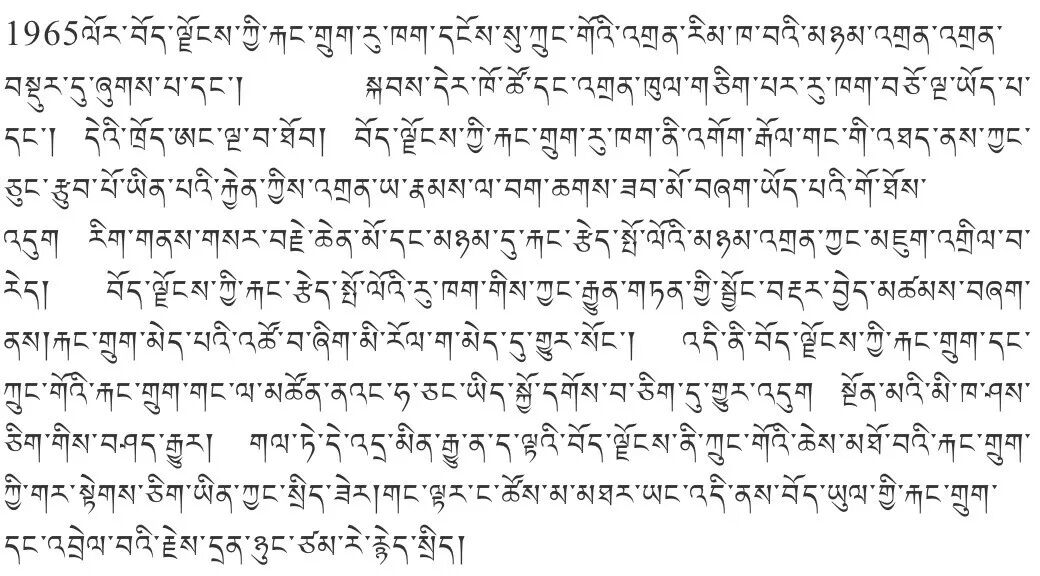 1965ལོར་བོད་ལྗོངས་ཀྱི་རྐང་གྲུག་རུ་ཁག་དངོས་སུ་ཀྲུང་གོའི་འགྲན་རིམ་ཁ་བའི་མཉམ་འགྲན་འགྲན་
བསྡུར་དུ་ཞུགས་པ་དང་། སྐབས་དེར་ཁོ་ཚོ་དང་འགྲན་ཁུལ་གཅིག་པར་རུ་ཁག་བཅོ་ལྔ་ཡོད་པ་
དང་། དེའི་ཁྲོད་ཨང་ལྔ་བ་ཐོབ། བོད་ལྗོངས་ཀྱི་རྐང་གྲུག་རུ་ཁག་ནི་འགོག་རྒོལ་གང་གི་འཐད་ནས་ཀྱང་
ཅུང་རྩུབ་པོ་ཡིན་པའི་རྐྱེན་ཀྱིས་འགྲན་ཡ་རྣམས་ལ་བག་ཆགས་ཟབ་མོ་བཞག་ཡོད་པའི་གོ་ཐོས་
འདུག རིག་གནས་གསར་བརྗེ་ཆེན་མོ་དང་མཉམ་དུ་རྐང་རྩེད་སྤོ་ལོའི་མཉམ་འགྲན་ཀྱང་མཇུག་འགྲིལ་བ་
རེད། བོད་ལྗོངས་ཀྱི་རྐང་རྩེད་སྤོ་ལོའི་རུ་ཁག་གིས་ཀྱང་རྒྱུན་གཏན་གྱི་སྦྱོང་བརྡར་བྱེད་མཚམས་བཞག་
ནས།རྐང་གྲུག་མེད་པའི་འཚོ་བ་ཞིག་མི་རོལ་ག་མེད་དུ་གྱུར་སོང་། འདི་ནི་བོད་ལྗོངས་ཀྱི་རྐང་གྲུག་དང་
ཀྲུང་གོའི་རྐང་གྲུག་གང་ལ་མཚོན་ནའང་ཧ་ཅང་ཡིད་སྐྱོ་དགོས་བ་ཅིག་དུ་གྱུར་འདུག སྔོན་མའི་མི་ཁ་ཤས་
ཅིག་གིས་བཤད་རྒྱུར། གལ་ཏེ་དེ་འདྲ་མིན་རྒྱུ་ན་ད་ལྟའི་བོད་ལྗོངས་ནི་ཀྲུང་གོའི་ཆེས་མཐོ་བའི་རྐང་གྲུག་
ཀྱི་གར་སྟེགས་ཅིག་ཡིན་ཀྱང་སྲིད་ཟེར།གང་ལྟར་ང་ཚོས་མ་མཐར་ཡང་འདི་ནས་བོད་ཡུལ་གྱི་རྐང་གྲུག་
དང་འབྲེལ་བའི་རྗེས་དྲན་ཉུང་ཙམ་རེ་རྙེད་སྲིད།